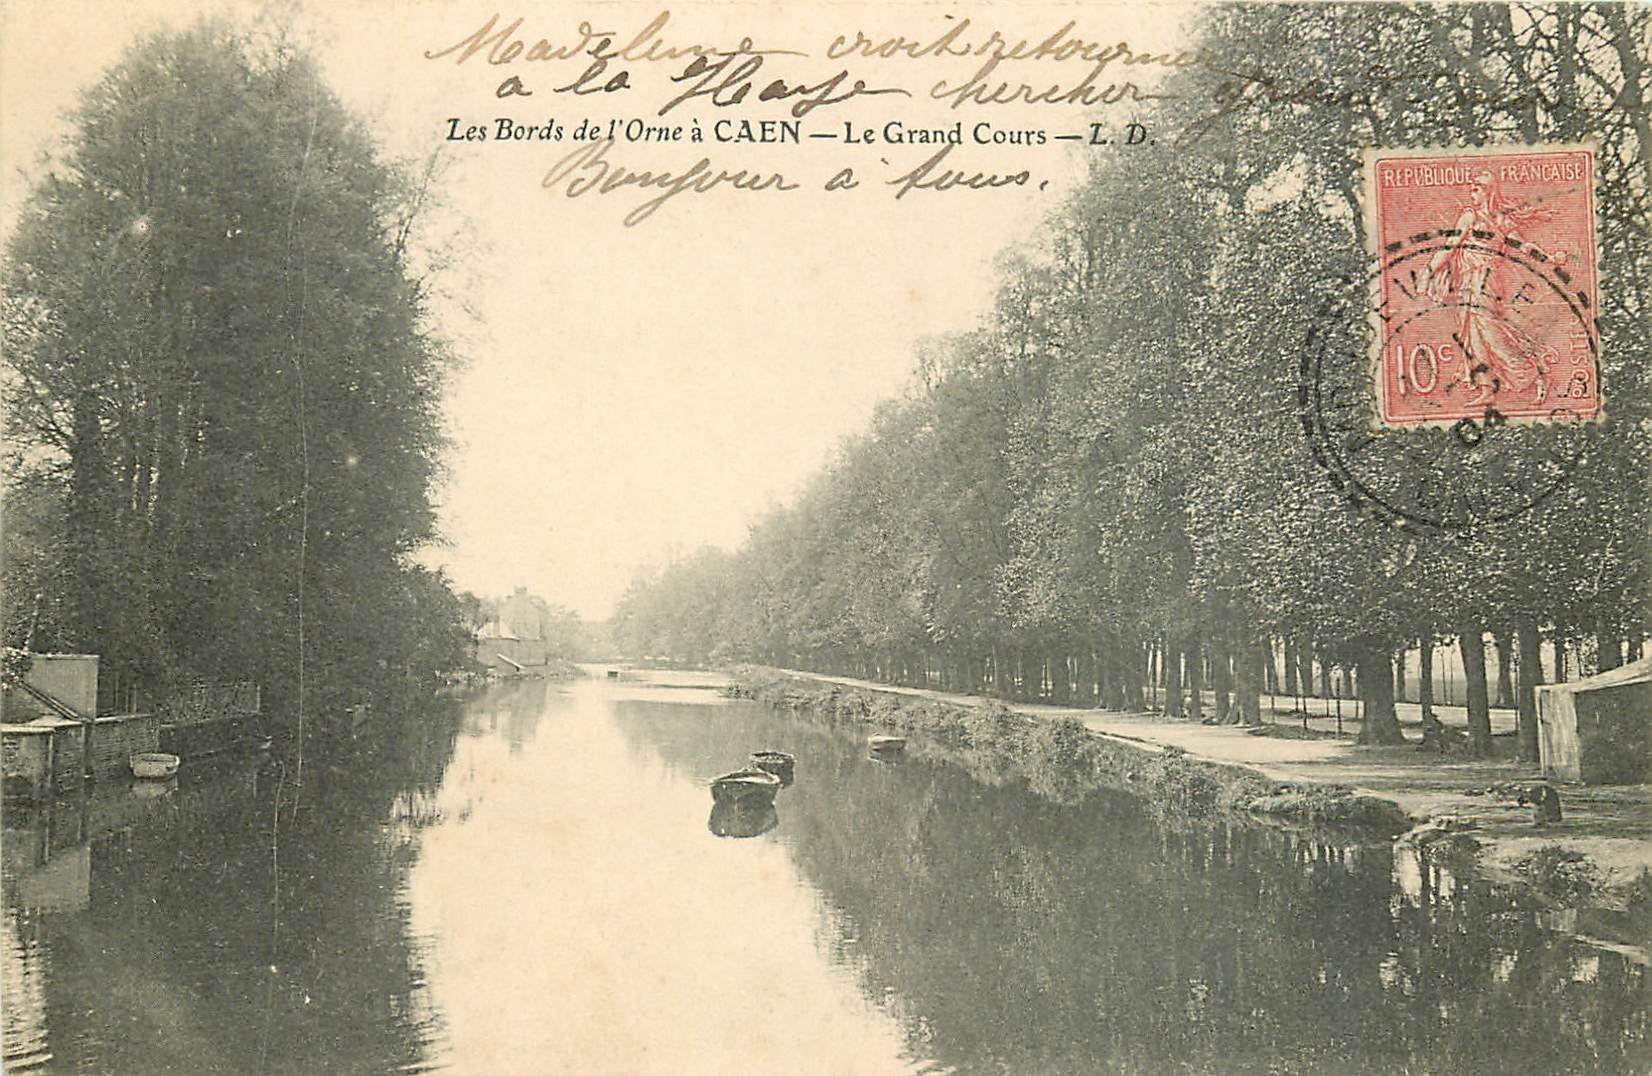 Madeleine croit retourner
a la Haye chercher
Les Bords de l'Orne à CAEN — Le Grand Cours — L. D.
Bonjour à tous.
REPUBLIQUE FRANÇAISE
10c
POSTES
04